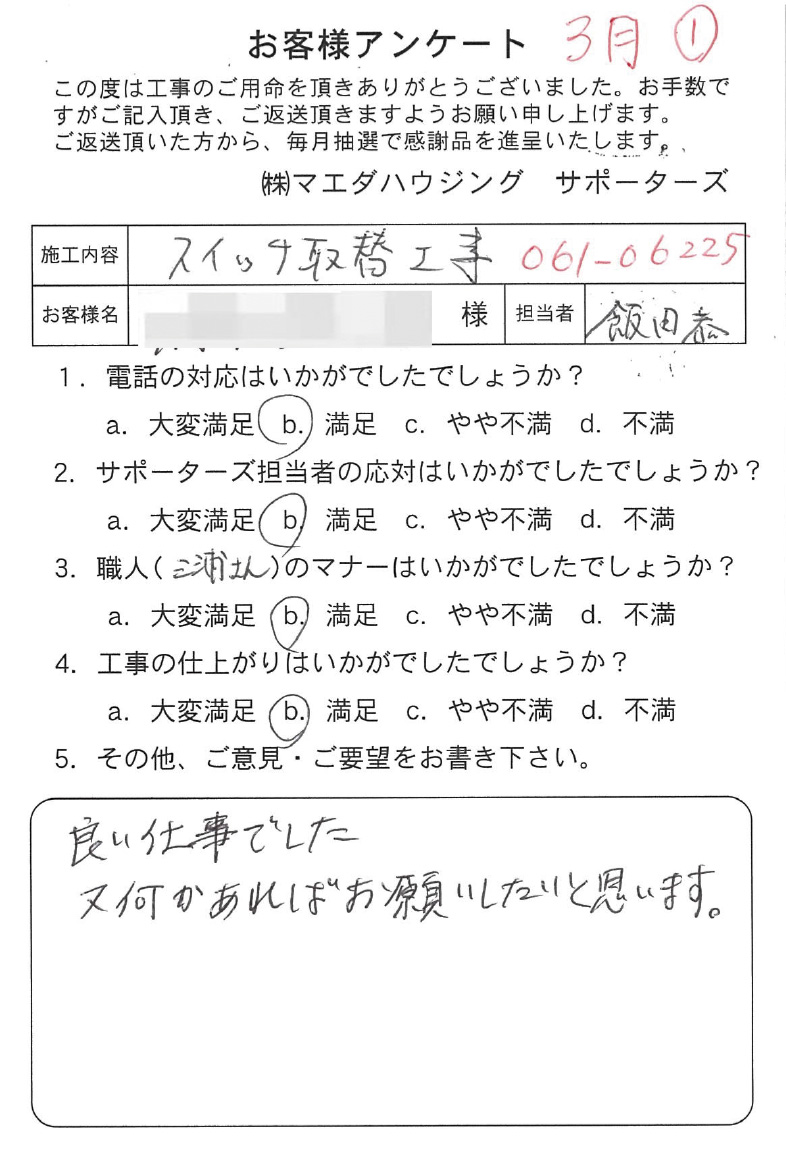 お客様アンケート 3月 ①
この度は工事のご用命を頂きありがとうございました。お手数で
すがご記入頂き、ご返送頂きますようお願い申し上げます。
ご返送頂いた方から、毎月抽選で感謝品を進呈いたします。
㈱マエダハウジング サポーターズ
施工内容 スイッチ取替工事 061-06225
お客様名 様 担当者 飯田恭
1. 電話の対応はいかがでしたでしょうか？
a. 大変満足 b. 満足 c. やや不満 d. 不満
2. サポーターズ担当者の応対はいかがでしたでしょうか？
a. 大変満足 b. 満足 c. やや不満 d. 不満
3. 職人(三浦さん)のマナーはいかがでしたでしょうか？
a. 大変満足 b. 満足 c. やや不満 d. 不満
4. 工事の仕上がりはいかがでしたでしょうか？
a. 大変満足 b. 満足 c. やや不満 d. 不満
5. その他、ご意見・ご要望をお書き下さい。
良い仕事でした
又何かあればお願いしたいと思います。